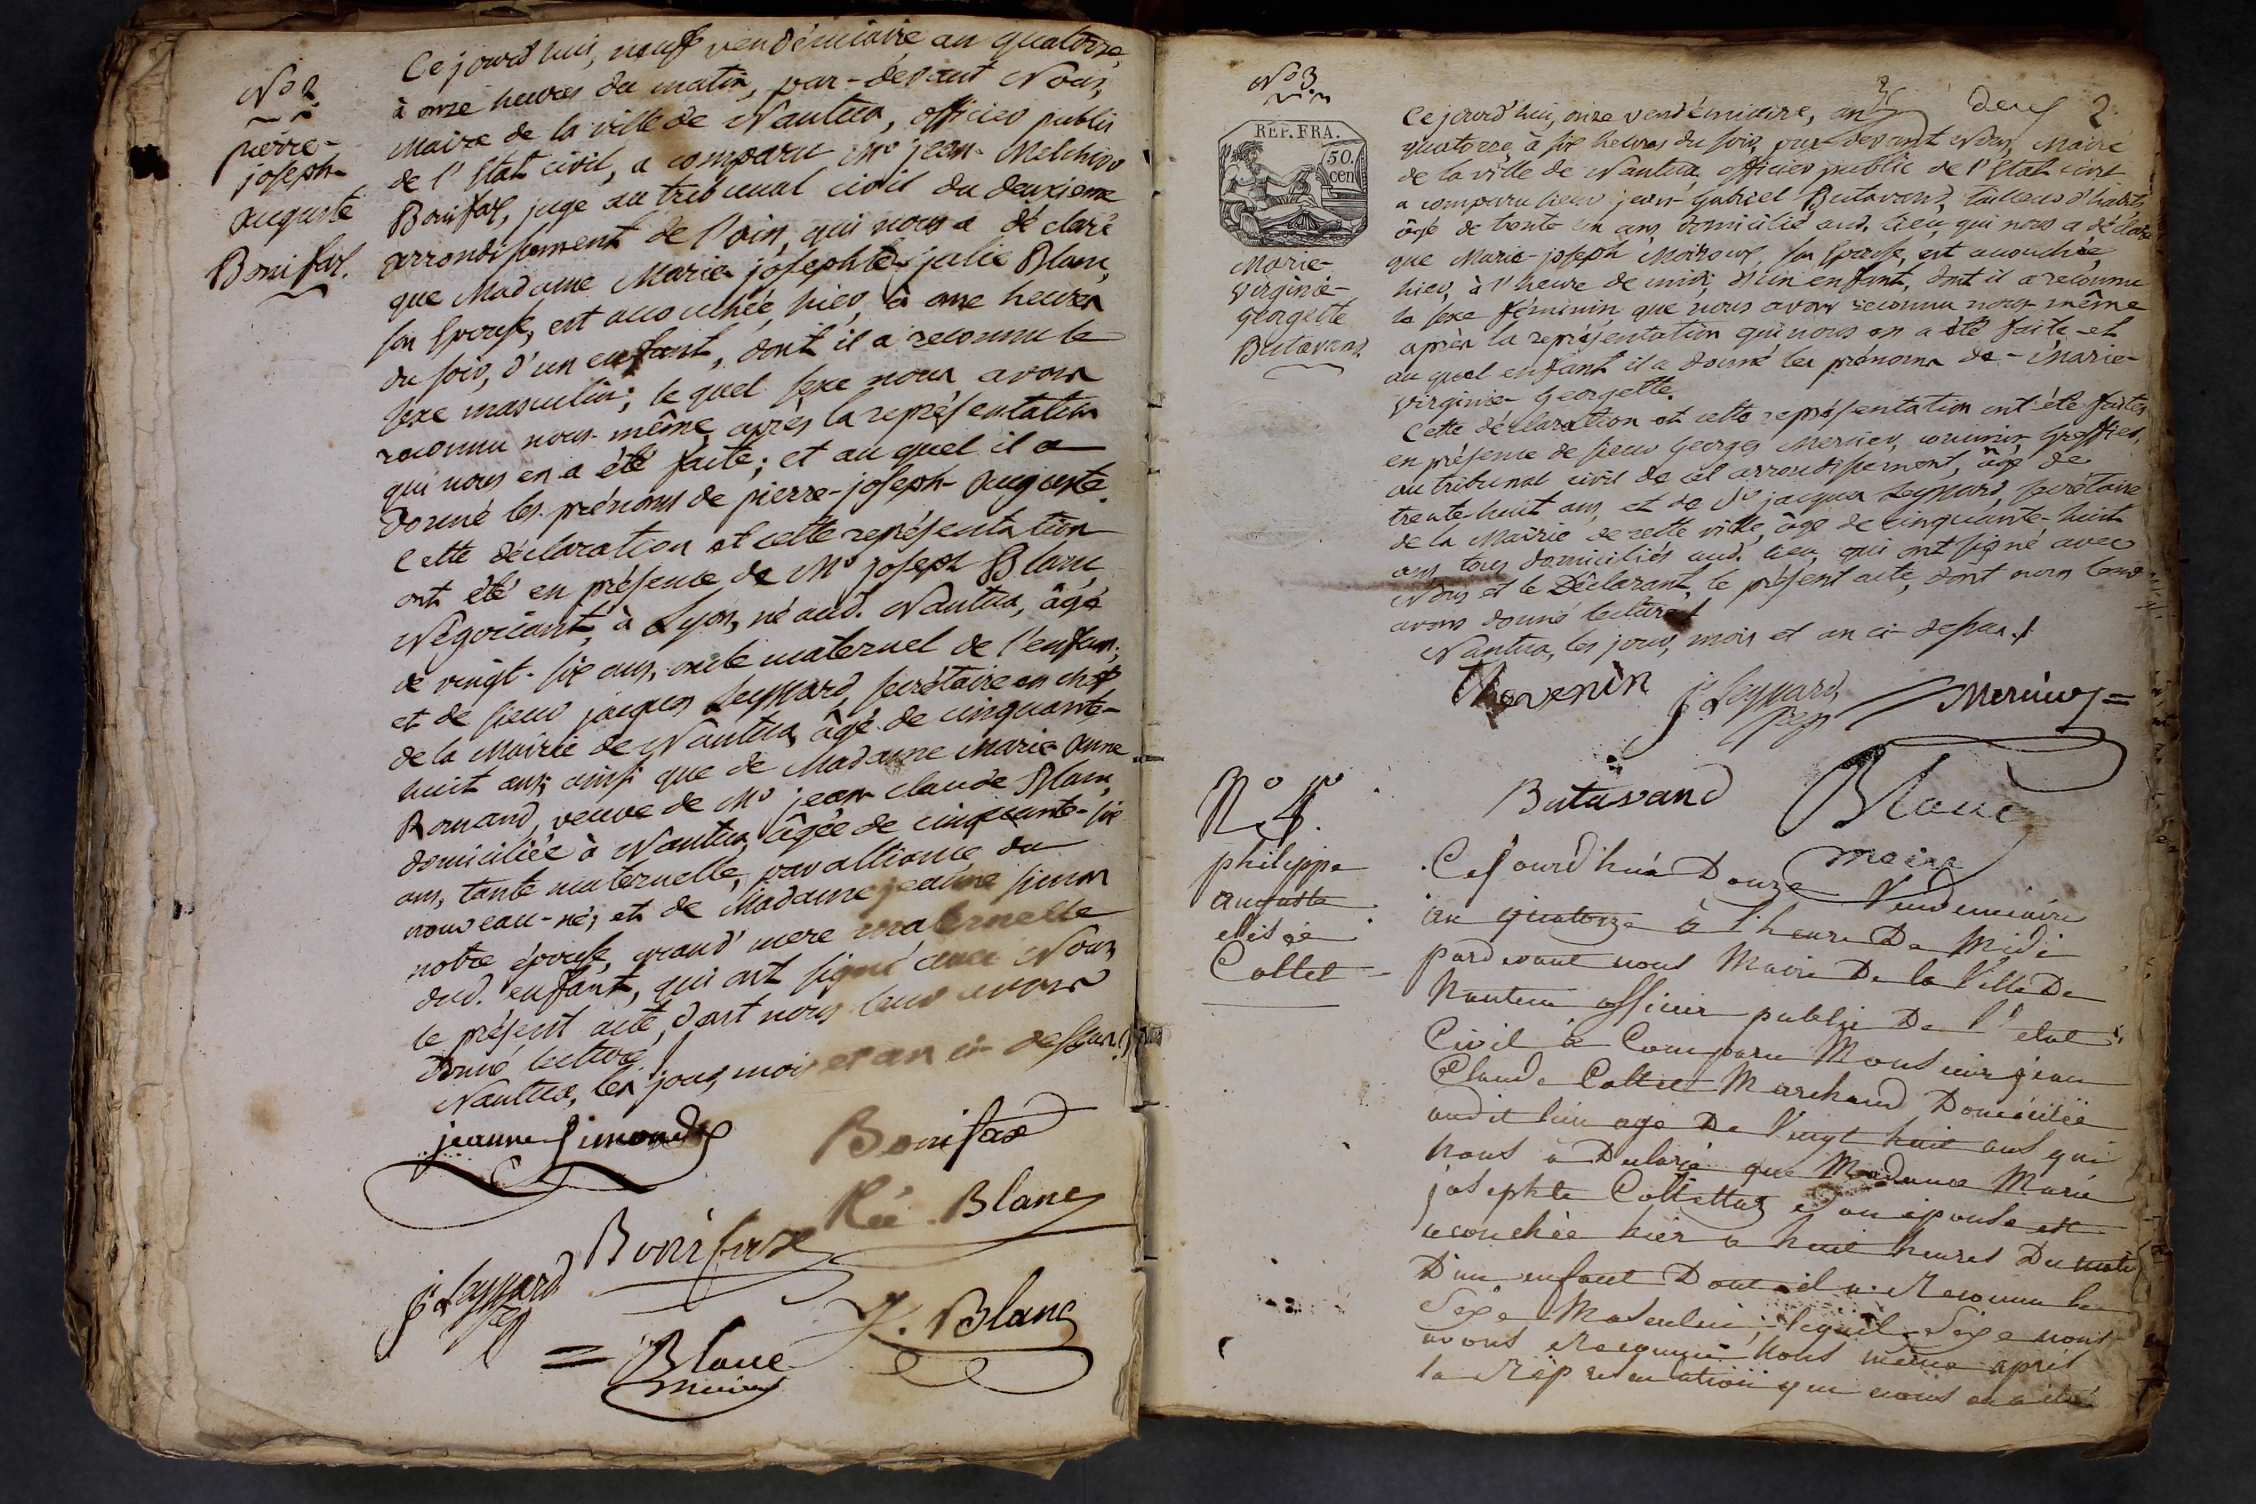 N.º 2.
pierre-
joseph-
auguste
Bonifax.
Ce jourd'hui, neuf vendémiaire an quatorze,
à onze heures du matin, par-devant Nous,
Maire de la ville de Nantua, officier public
de l'Etat civil, a comparu Mr jean-Melchior
Bonifax, juge au tribunal civil du deuxieme
arrondissement de l'ain, qui nous a déclaré
que Madame Marie josephte julie Blanc,
son Epouse, est accouchée, hier, à onze heures
du soir, d'un enfant, dont il a reconnu le
sexe masculin; le quel sexe nous avons
reconnu nous-même, après la représentation
qui nous en a été faite; et au quel il a
donné les prénoms de pierre-joseph-auguste.
Cette déclaration et cette représentation
ont été en présence de Mr joseph Blanc
Négociant, à Lyon, né aud. Nantua, âgé
de vingt-six ans, oncle maternel de l'enfant;
et de sieur jacques Leyssard, secrétaire en chef
de la Mairie de Nantua, âgé de cinquante-
huit ans; ainsi que de Madame Marie-anne
veuve de Mr jean claude Blanc,
domiciliée à Nantua, âgée de cinquante-six
ans, tante maternelle, par alliance du
nouveau-né; et de Madame jeanne simon
notre épouse, grand'mere maternelle
dud. enfant, qui ont signé avec Nous
le présent acte, dont nous leur avons
donné lecture.
Nantua, les jour, mois et an ci-dessus.
jeanne Simond
Bonifax
Blanc
Bonifax
j. Leyssard
J. Blanc
Blanc
maire
N.º 3.
REP. FRA.
50.
cen
Marie-
virginie-
georgette
Butavand
deux 2.
Ce jourd'hui, onze vendémiaire, an
quatorze à six heures du soir, par-devant Nous, Maire
de la ville de Nantua, officier public de l'Etat civil
a comparu sieur jean-gabriel Butavand, tailleur d'habits
âgé de trente un ans domicilié aud. lieu, qui nous a déclaré
que Marie-joseph Moiroux, son Epouse, est accouchée
hier, à l'heure de midi, d'un enfant, dont il a reconnu
le sexe féminin que nous avons reconnu nous-même
après la représentation qui nous en a été faite, et
au quel enfant il a donné les prénoms de Marie-
virginie-georgette.
Cette déclaration et cette représentation ont été faites
en présence de sieur Georges Mercier, commis Greffier
au tribunal civil de cet arrondissement, âgé de
trente-huit ans, et de Sr jacques Leyssard, secrétaire
de la Mairie de cette ville, âgé de cinquante-huit
ans, tous domiciliés aud. lieu, qui ont signé avec
Nous et le Déclarant, le présent acte, dont nous leur
avons donné lecture.
Nantua, les jour, mois et an ci-dessus.
Thevenin
j. Leyssard
Mercier
Butavand
Blanc
maire
N.º 4.
philippe
auguste
elisée
Collet
Cejourd'hui Douze Vendemiaire
an quatorze à l'heure De Midi
pardevant nous Maire De la Ville De
Nantua officier public De l'etat
Civil à Comparu Monsieur jean
Claude Collet Marchand Domicilié
audit lieu agé De Vingt huit ans qui
nous a Declaré que Madame Marie
josephte Collettaz Son épouse est
acouchée hier a huit heures Du matin
D'un enfant Dont il a Reconnu le
Sexe Masculin; lequel Sexe nous
avons Reconnu Nous même après
la Représentation qui nous en a été